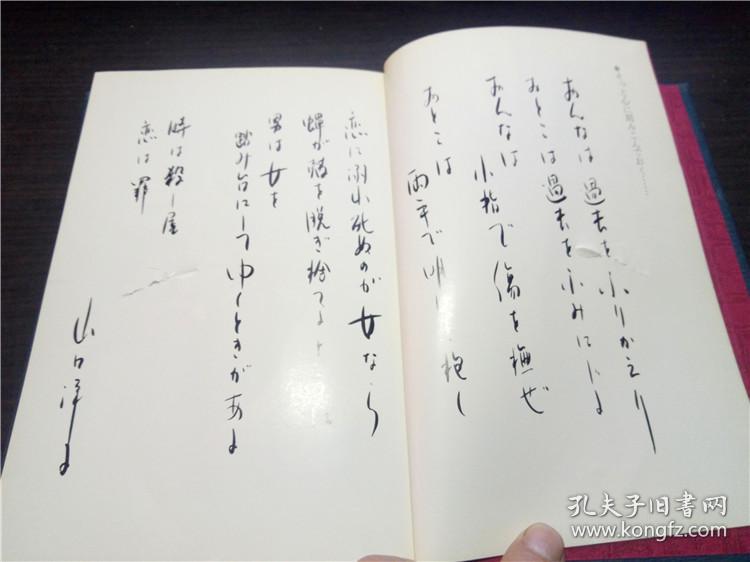 おんなは 過去を ふりかえり
おとこは 過去を ふみにじる
おんなは
小指で 傷を 撫ぜ
おとこは
両手で 明 抱く
恋に溺れ死ぬのが 女なら
蝉が殻を 脱ぎ捨てると
男は 女を
踏み台にして ゆくときがある
時は 殺し屋
恋は 罪
山口洋子
孔夫子旧书网
www.kongfz.com